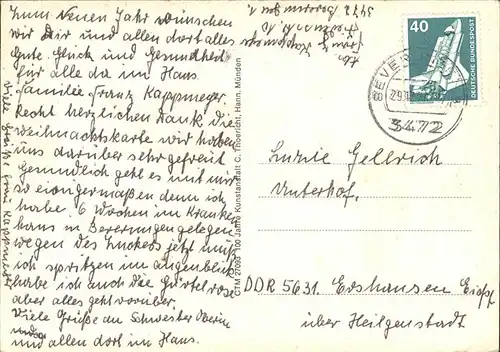 Zum Neuen Jahr wünschen
wir Dir und allen dort alles
Gute. Glück und Gesundheit
für alle da im Haus.
Familie Franz Kappmeyer.
Recht herzlichen Dank die
Weihnachtskarte wir haben
uns darüber sehr gefreit
Gesundlich geht es mit mir
so einigermaßen denn ich
habe 6 Wochen im Kranken
haus in Beverungen gelegen
wegen des Zuckers jetzt muß
ich spritzen im augenblick
habe ich auch die Gürtelrose
aber alles geht vorüber.
Viele Grüße an Schwester Oberin
und allen dort im Haus.
Viele Grüße Frau Kappmeyer
3472 Beverungen 1
40
DEUTSCHE BUNDESPOST
BEVE
29.12
3472
CTM 27093 100 Jahre Kunstanstalt C. Thoericht, Hann. Münden
Gellrich
Unterhof.
DDR 5631 Ershausen Eichsf
über Heilgenstadt